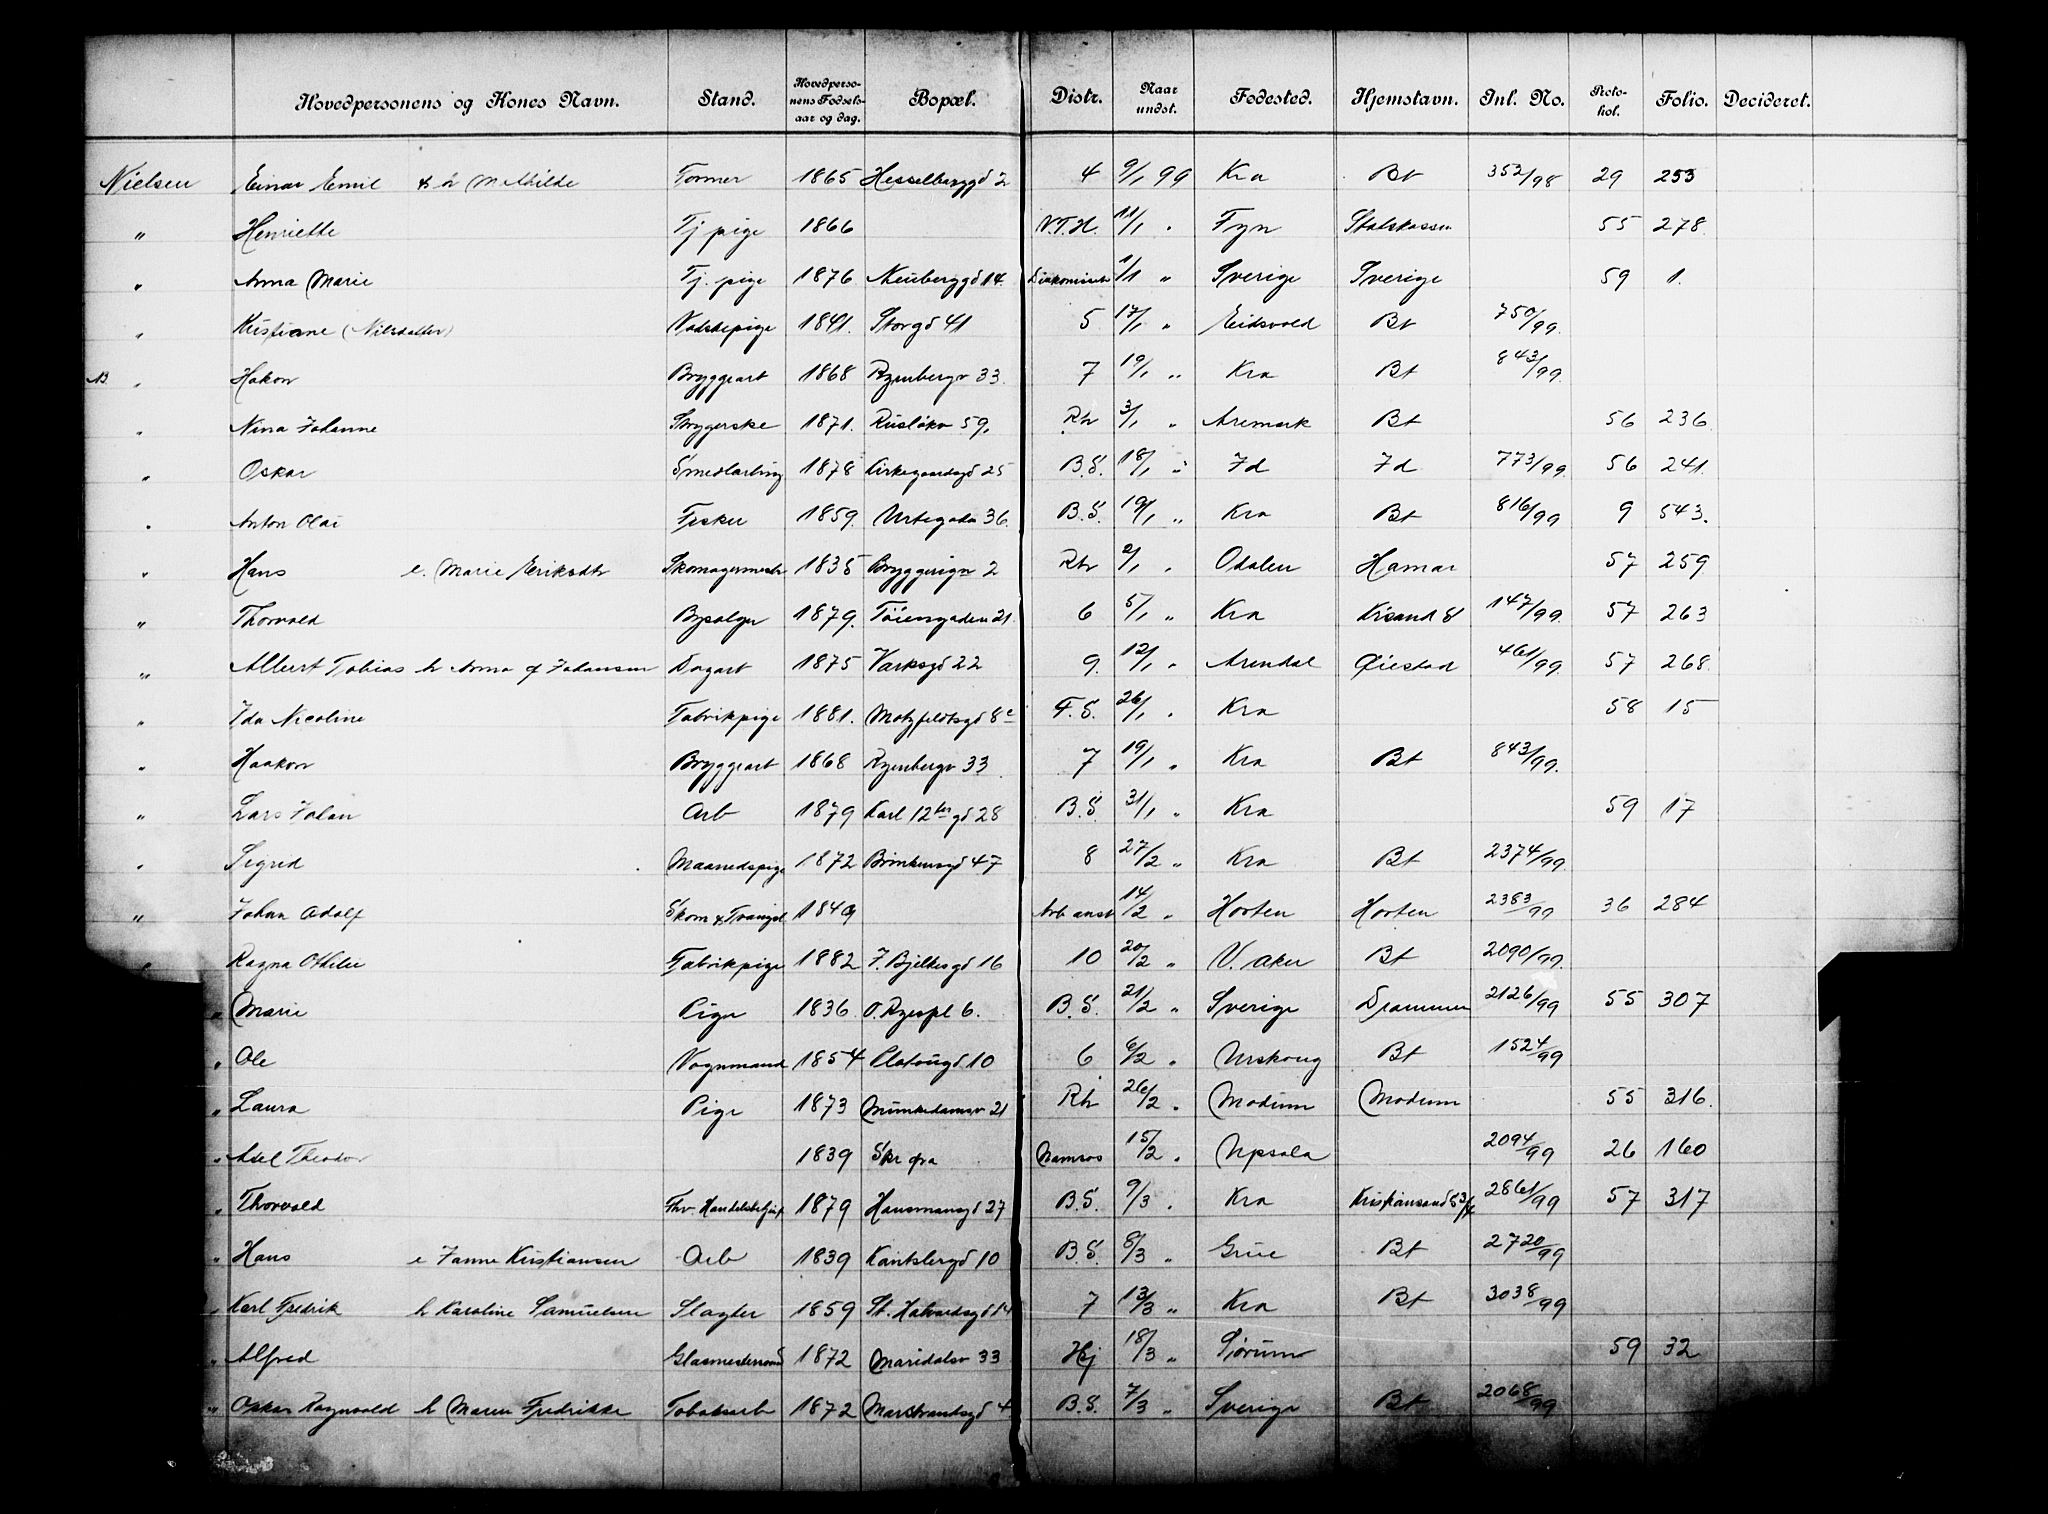 Hovedpersonens og Kones Navn. Stand. Hovedpersonens Fødselsaar og dag. Bopæl. Distr. Naar undst. Fødested. Hjemstavn. Inl. No. Protohol. Folio. Decideret.
Nielsen Einar Emil & h Mathilde Former 1865 Hesselberggd 2 4 9/1 99 Kra Bt 352/98 29 253
" Henriette Tj pige 1866 V.T.H. 11/1 " Fyn Statskassen 55 278.
" Anna Marie Tj. pige 1876 Neuberggd 14. 1/1 " Sverige Sverige 59 1.
" Kristiane (Nilsdatter) Vadskepige 1841. Storgd 41 5 17/1 " Eidsvold Bt 750/99.
" Hakon Bryggearb 1868 Ryenbergv 33. 7 19/1 " Kra Bt 843/99.
" Nina Johanne Strygerske 1871. Rusløkv 59, Rh 3/1 " Aremark Bt 56 236
" Oskar Smedlærling 1878 Kirkegaardsgd 25 B.S. 18/1 " Id Id 773/99. 56 241.
" Anton Olai Fisker 1859. Urtegada 36. B.S. 19/1 " Kra Bt 816/99 9 543.
" Hans e. Marie Eriksdtr Skomagermestr 1835 Bryggerigv 2 Rh 2/1 " Odalen Hamar 57 259.
" Thorvald Bysælger 1879. Tøiengaden 21. 6 5/1 " Kra Krsand S 147/99. 57 263
" Albert Tobias h Anna f Johansen Dagarb 1875 Værksgd 22 9. 12/1 " Arendal Øiestad 461/99. 57 268.
" Ida Nicoline Fabrikpige 1881. Motzfeldtsgd 8c F.S. 26/1 " Kra 58 15
" Haakon Bryggearb 1868 Ryenbergv 33. 7 19/1 " Kra Bt 843/99.
" Lars Johan Arb 1879 Karl 12tes gd 28 B.S. 31/1 " Kra 59 17
" Sigrid Maanedspige 1872 Brinkensgd 47 8 27/2 " Kra Bt 2374/99.
" Johan Adolf Skom & Tvangsl 1849 Arb anst 14/2 " Horten Horten 2383/99 36 284
" Ragna Othilie Fabrikpige 1882 J. Bjelkesgd 16 10 20/2 " V. Aker Bt 2090/99.
" Marie Pige 1836. O. Ryespl 6. B.S. 21/2 " Sverige Drammen 2126/99 55 307
" Ole Vognmand 1854 Platougd 10 6 6/2 " Urskoug Bt 1524/99
" Laura Pige 1873 Munkedamsv 21 Rh 26/2 " Modum Modum 55 316.
" Axel Theodor 1839 Skr fra Namsos 15/2 " Upsala 2094/99 26 160
" Thorvald Fhv. Handelsbetjent 1879 Hausmansgd 27 B.S. 9/3 " Kra Kristiansand S 2861/99 57 317
" Hans e Janne Kristiansen Arb 1839 Kantslergd 10 B.S. 8/3 " Grue Bt 2720/99
" Karl Fredrik h Karoline Samuelsen Slagter 1859 St. Halvardsgd 14 7 13/3 " Kra Bt 3038/99
" Alfred Glasmestersvend 1872 Maridalsv 33 Hj 18/3 " Sørum 59 32
" Oskar Ragnvald h Maren Fredrikke Tobaksarb 1872 Marstrandsgd 4 B.S. 7/3 " Sverige Bt 2068/99